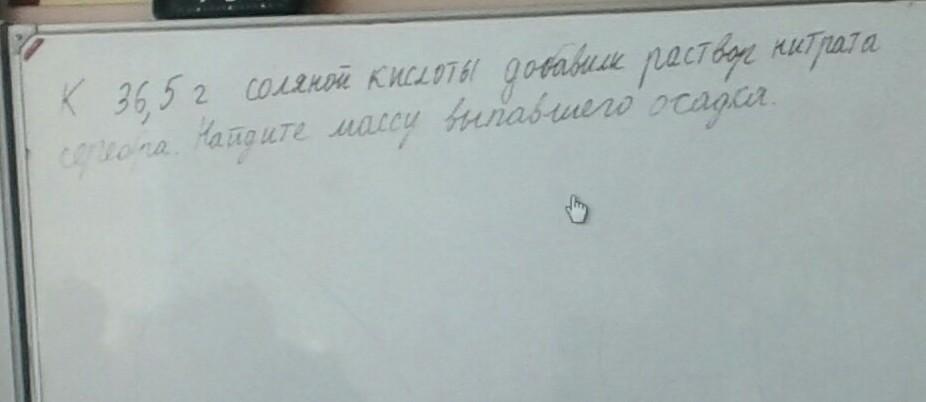 К 36,5 г соляной кислоты добавили раствор нитрата
серебра. Найдите массу выпавшего осадка.